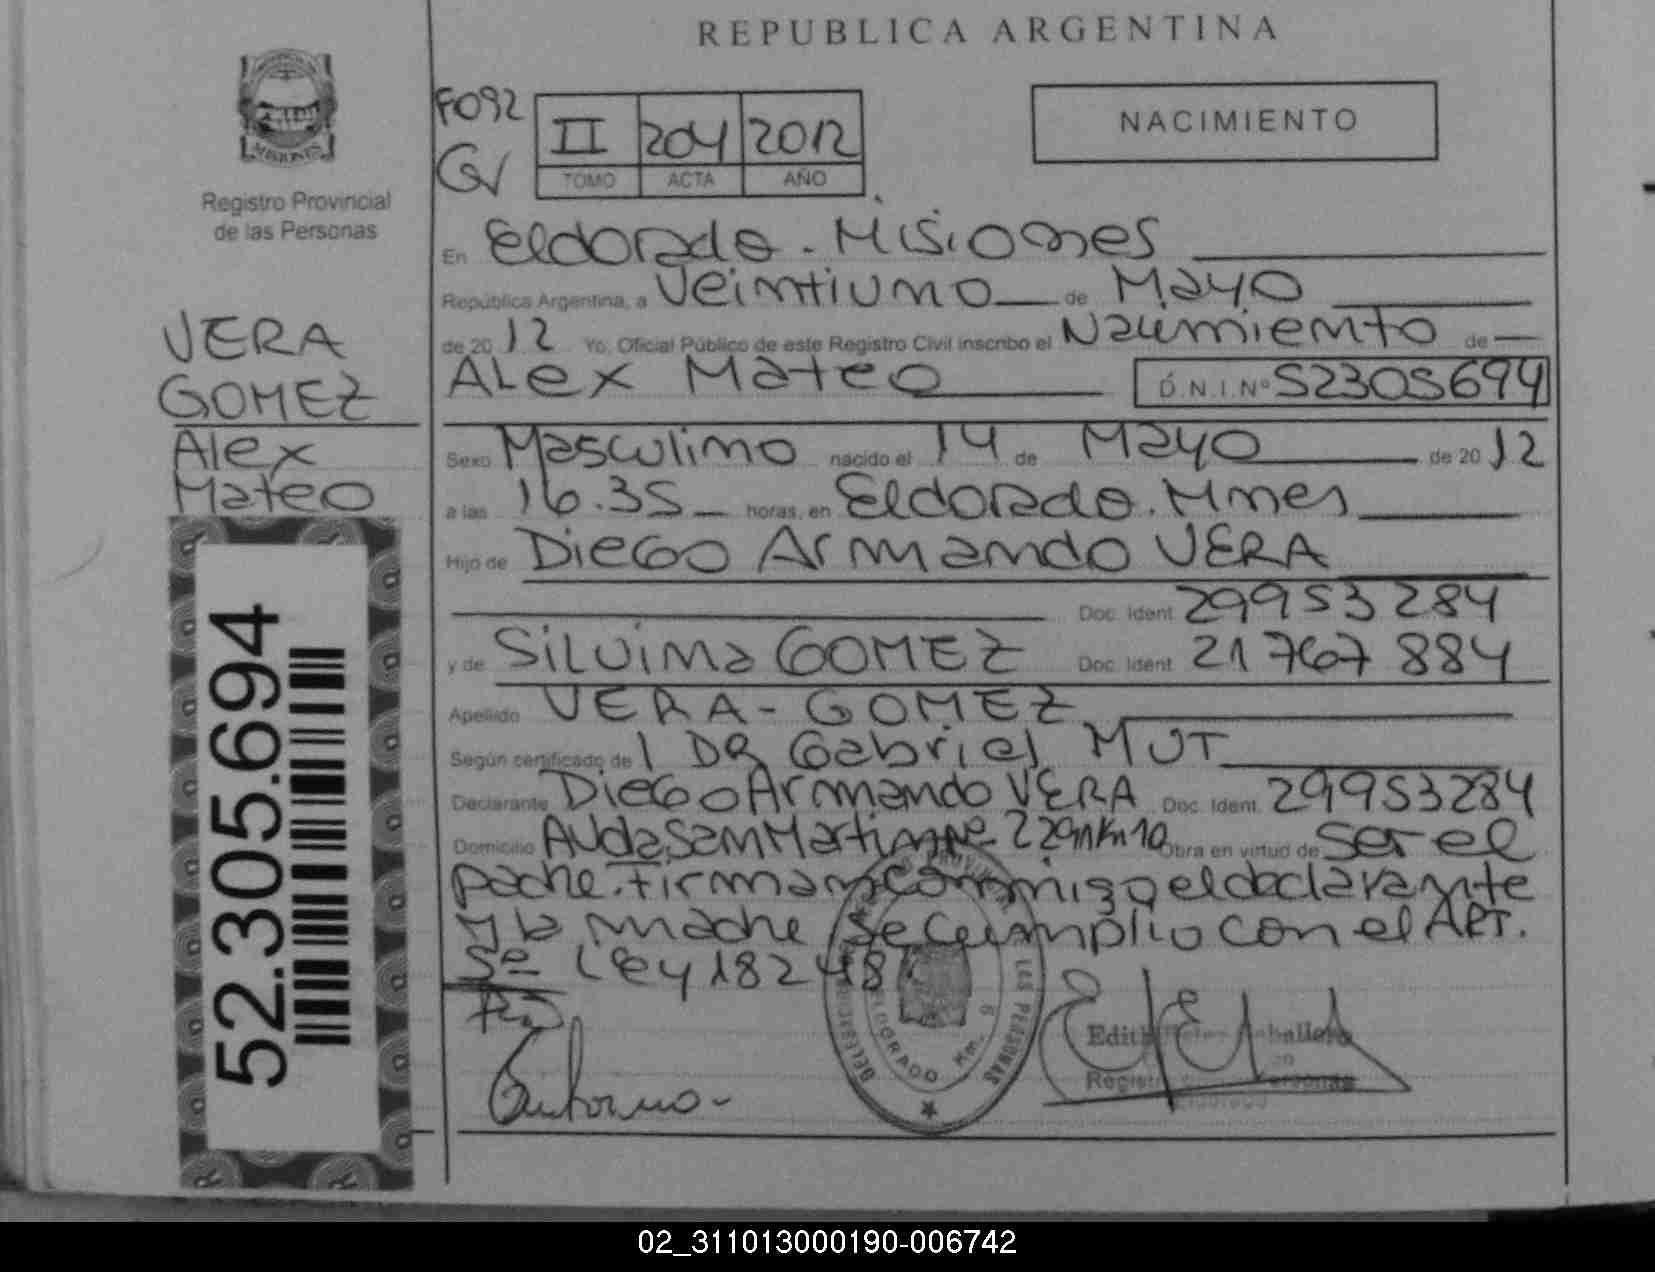 REPUBLICA ARGENTINA
MISIONES
Registro Provincial
de las Personas
FO92
II 204 2012
TOMO ACTA AÑO
NACIMIENTO
En Eldorado - Misiones
República Argentina, a Veintiuno de Mayo
de 20 12 Yo, Oficial Público de este Registro Civil inscribo el Nacimiento de
Alex Mateo D.N.I.Nº 52305694
VERA
GOMEZ
Alex
Mateo
Sexo Masculino nacido el 14 de Mayo de 20 12
a las 16.35 horas, en Eldorado. Mnes
Hijo de Diego Armando VERA
Doc. Ident. 29953284
y de Silvina GOMEZ Doc. Ident. 21767884
Apellido VERA - GOMEZ
Según certificado de l DR Gabriel MUT
Declarante Diego Armando VERA Doc. Ident. 29953284
Domicilio Avda San Martin Nº 2290 Km 10 Obra en virtud de Ser el
padre. Firman conmigo el declarante
y la madre Se Cumplio con el ART.
5º Ley 18248
52.305.694
ELDORADO Km.
LAS PERSONAS
Edith
02_311013000190-006742